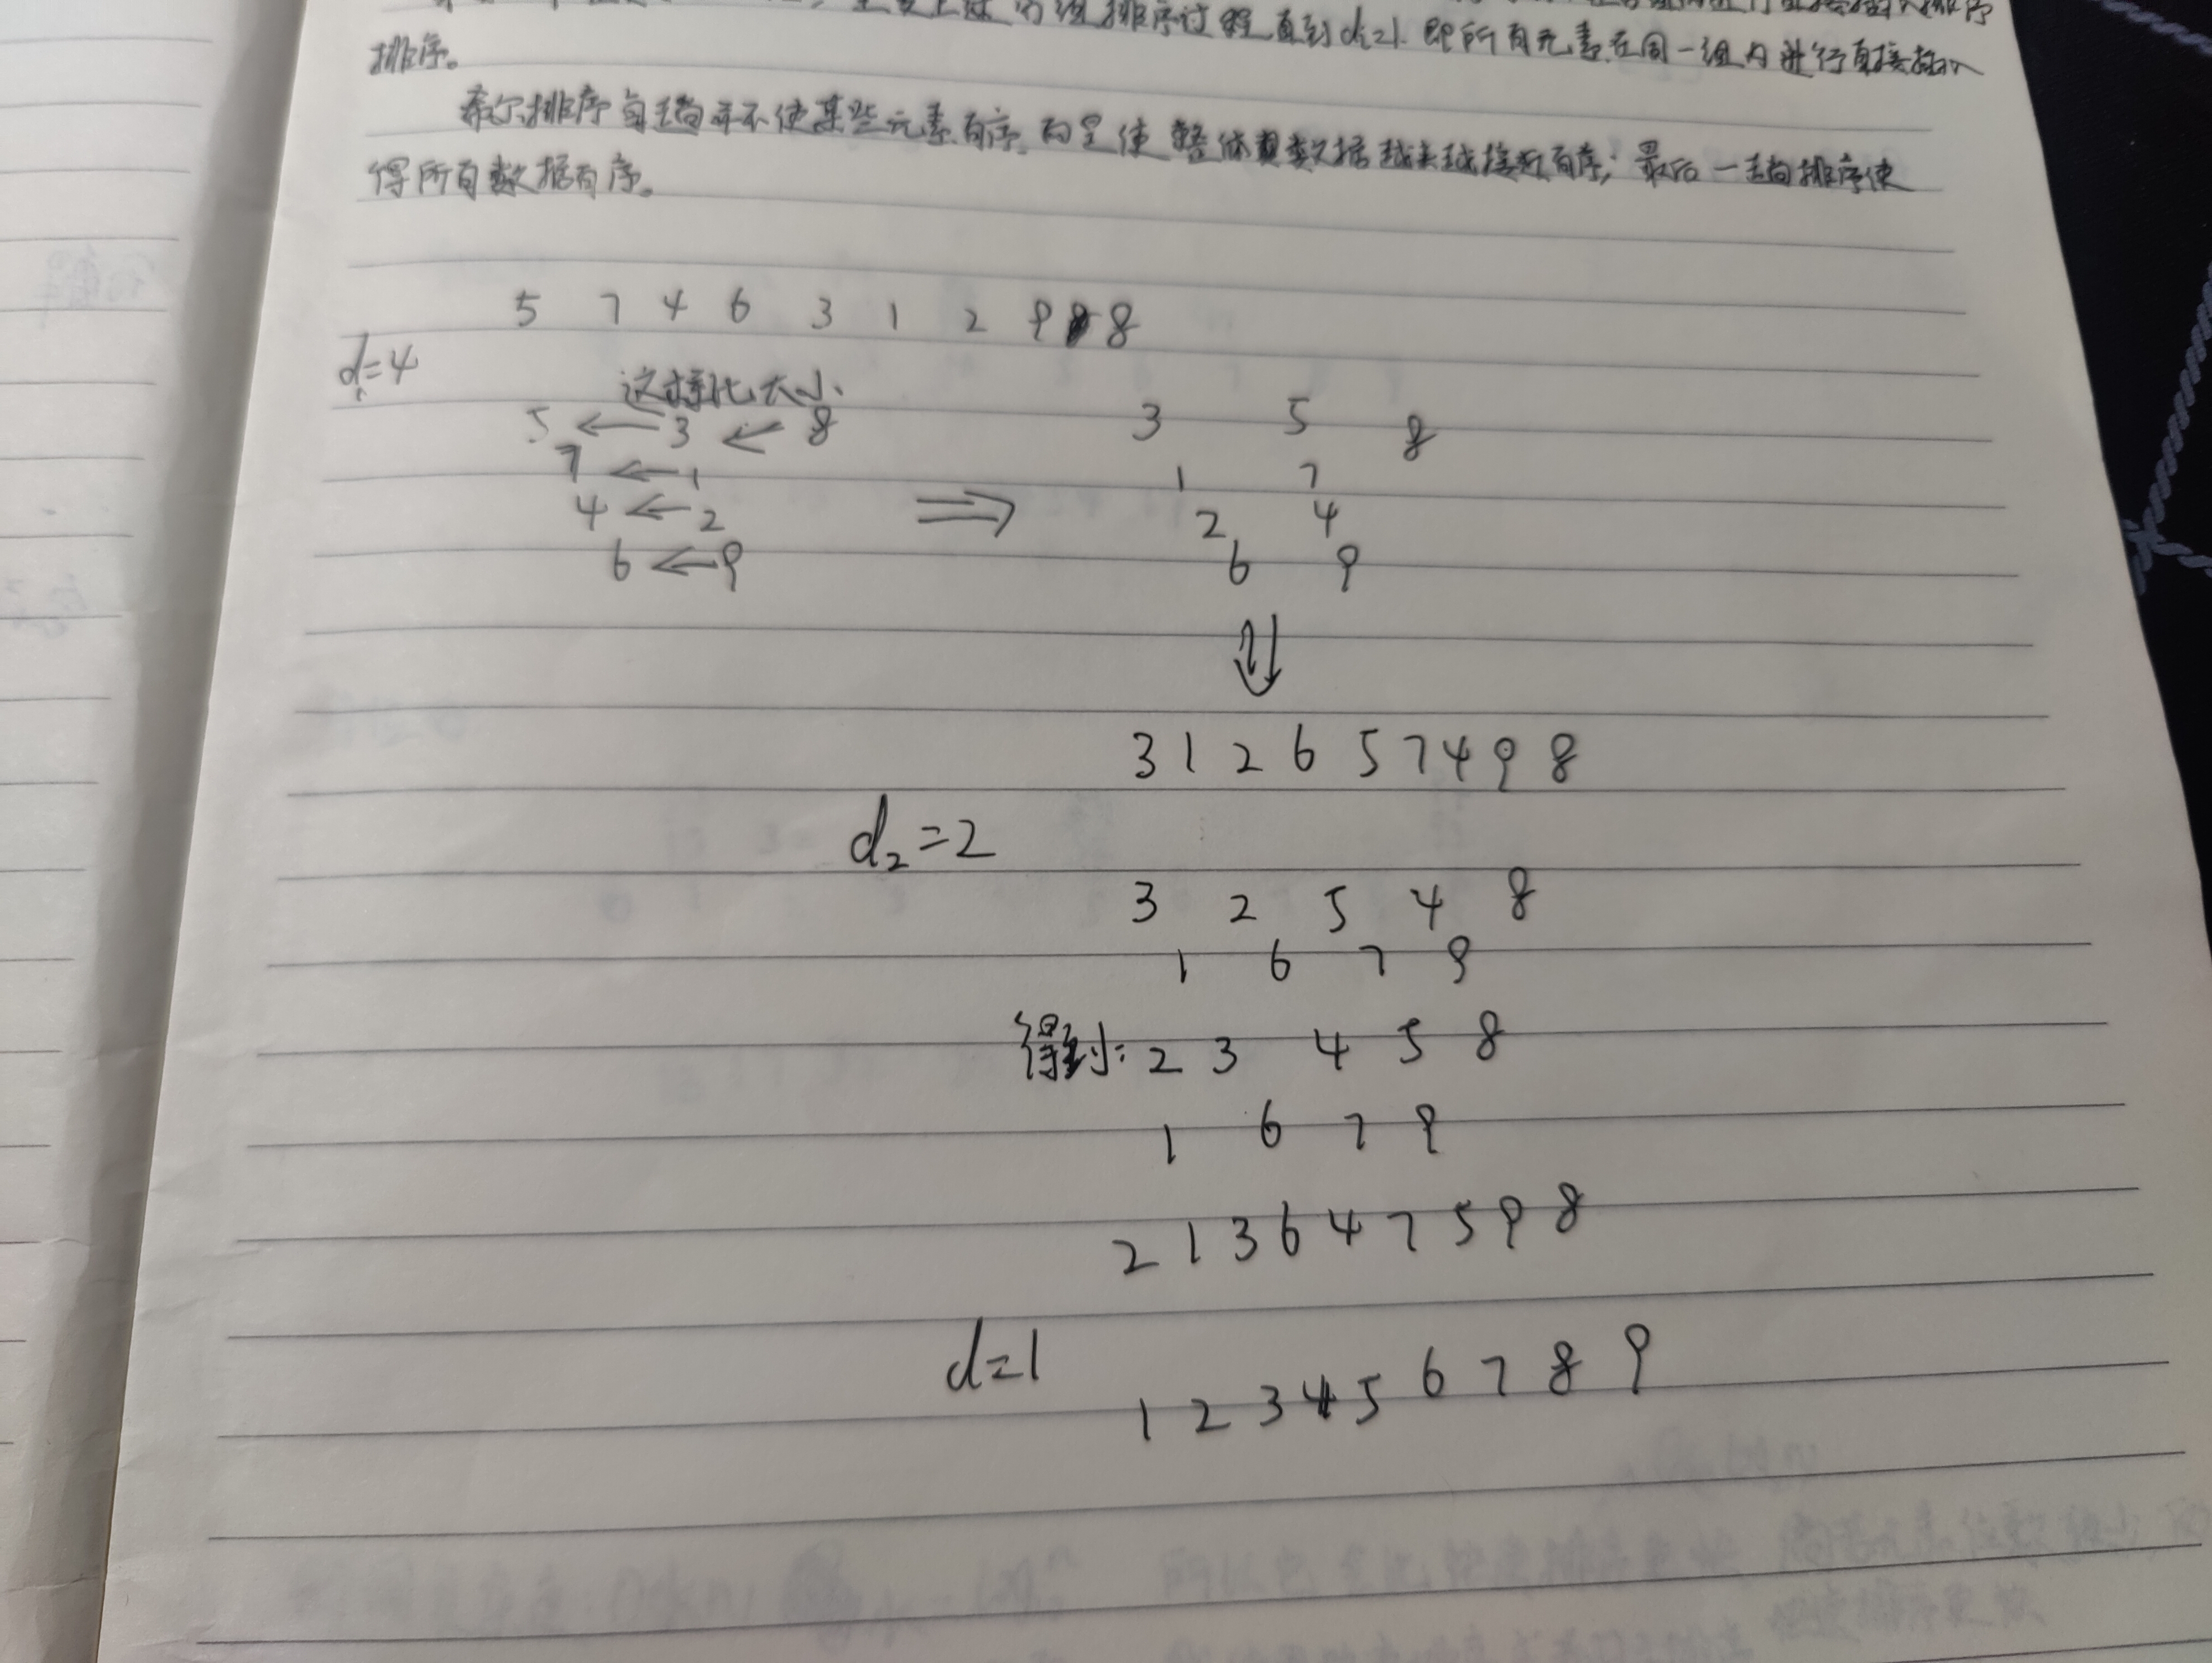 排序过程直到d=1.即所有元素在同一组内进行直接插入
排序。
希尔排序每趟并不使某些元素有序,而是使整体数据越来越接近有序;最后一趟排序使
得所有数据有序。
5 7 4 6 3 1 2 9 8
d₁=4
这样比大小
5 ← 3 ← 8 3 5 8
7 ← 1 1 7
4 ← 2 ⇒ 2 4
6 ← 9 6 9
⇓
3 1 2 6 5 7 4 9 8
d₂=2
3 2 5 4 8
1 6 7 9
得到: 2 3 4 5 8
1 6 7 9
2 1 3 6 4 7 5 9 8
d=1
1 2 3 4 5 6 7 8 9